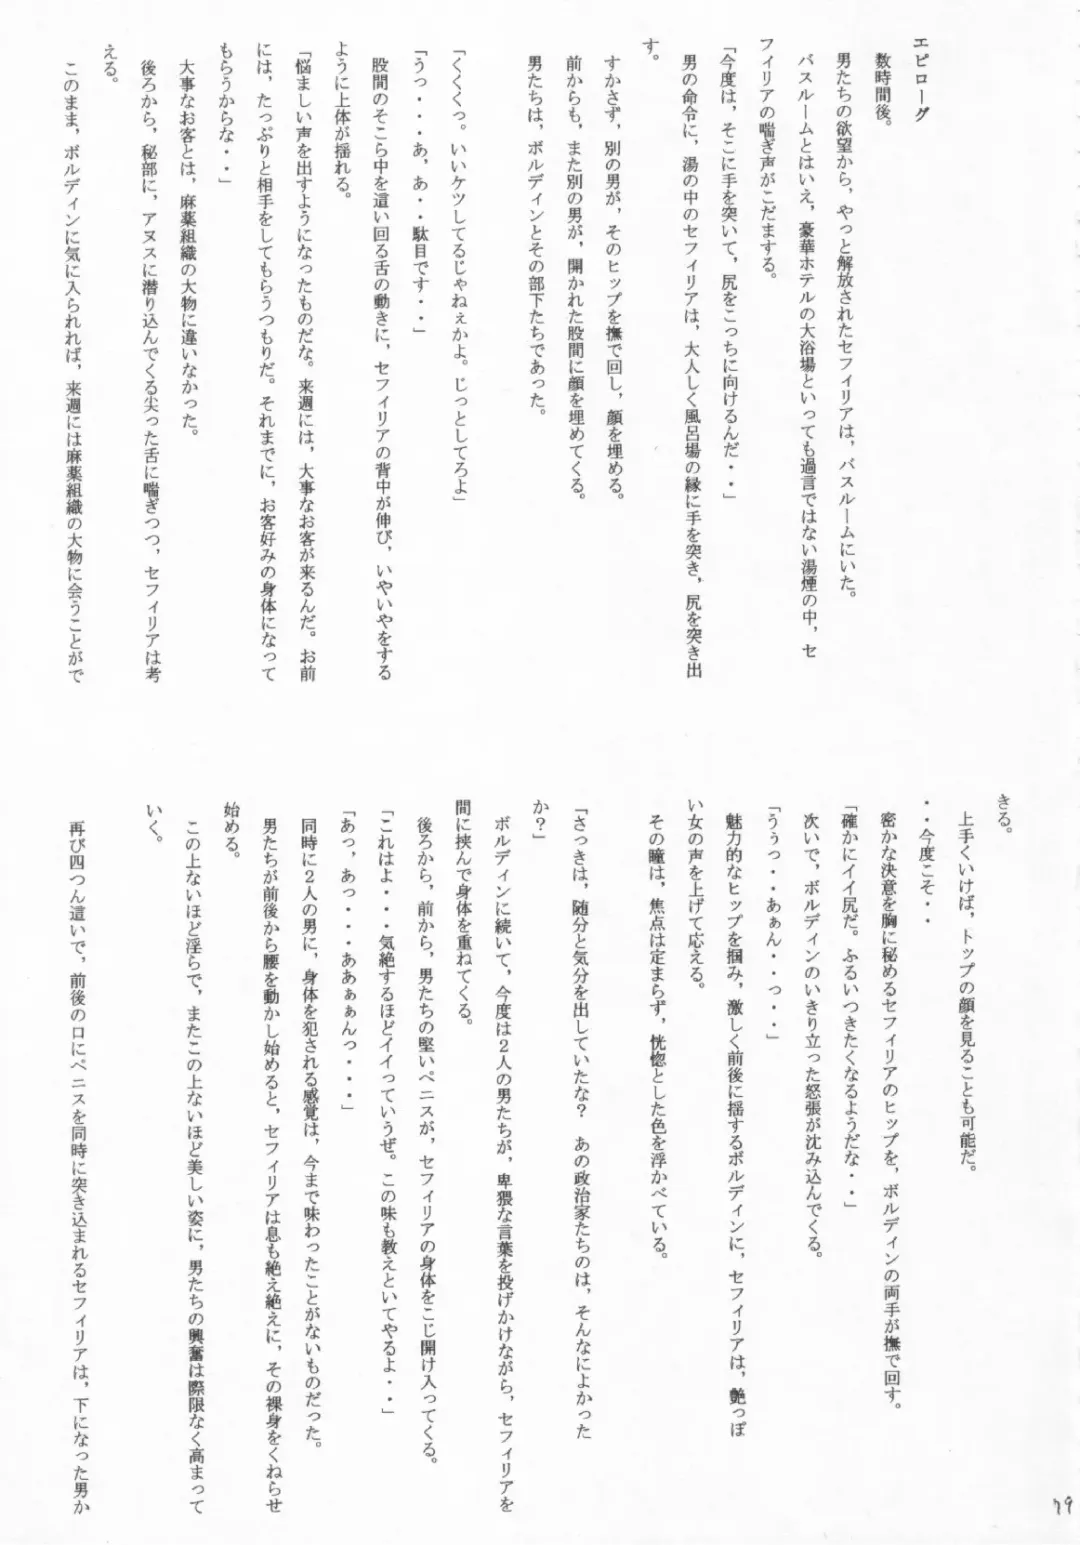 エピローグ
数時間後。
男たちの欲望から、やっと解放されたセフィリアは、バスルームにいた。
バスルームとはいえ、豪華ホテルの大浴場といっても過言ではない湯煙の中、セ
フィリアの喘ぎ声がこだまする。
「今度は、そこに手を突いて、尻をこっちに向けるんだ・・」
男の命令に、湯の中のセフィリアは、大人しく風呂場の縁に手を突き、尻を突き出
す。
すかさず、別の男が、そのヒップを撫で回し、顔を埋める。
前からも、また別の男が、開かれた股間に顔を埋めてくる。
男たちは、ボルディンとその部下たちであった。
「くくくっ。いいケツしてるじゃねぇかよ。じっとしてろよ」
「うっ・・・あ、あ・・駄目です・・」
股間のそこら中を這い回る舌の動きに、セフィリアの背中が伸び、いやいやをする
ように上体が揺れる。
「悩ましい声を出すようになったものだな。来週には、大事なお客が来るんだ。お前
には、たっぷりと相手をしてもらうつもりだ。それまでに、お客好みの身体になって
もらうからな・・」
大事なお客とは、麻薬組織の大物に違いなかった。
後ろから、秘部に、アヌスに潜り込んでくる尖った舌に喘ぎつつ、セフィリアは考
える。
このまま、ボルディンに気に入られれば、来週には麻薬組織の大物に会うことがで
きる。
上手くいけば、トップの顔を見ることも可能だ。
・・今度こそ・・
密かな決意を胸に秘めるセフィリアのヒップを、ボルディンの両手が撫で回す。
「確かにイイ尻だ。ふるいつきたくなるようだな・・」
次いで、ボルディンのいきり立った怒張が沈み込んでくる。
「うぅっ・・あぁん・・っ・・」
魅力的なヒップを掴み、激しく前後に揺するボルディンに、セフィリアは、艶っぽ
い女の声を上げて応える。
その瞳は、焦点は定まらず、恍惚とした色を浮かべている。
「さっきは、随分と気分を出していたな？　あの政治家たちのは、そんなによかった
か？」
ボルディンに続いて、今度は２人の男たちが、卑猥な言葉を投げかけながら、セフィリアを
間に挟んで身体を重ねてくる。
後ろから、前から、男たちの堅いペニスが、セフィリアの身体をこじ開け入ってくる。
「これはよ・・・気絶するほどイイっていうぜ。この味も教えといてやるよ・・」
「あっ、あっ・・・・ああぁぁんっ・・・・」
同時に２人の男に、身体を犯される感覚は、今まで味わったことがないものだった。
男たちが前後から腰を動かし始めると、セフィリアは息も絶え絶えに、その裸身をくねらせ
始める。
この上ないほど淫らで、またこの上ないほど美しい姿に、男たちの興奮は際限なく高まって
いく。
再び四つん這いで、前後の口にペニスを同時に突き込まれるセフィリアは、下になった男か
79